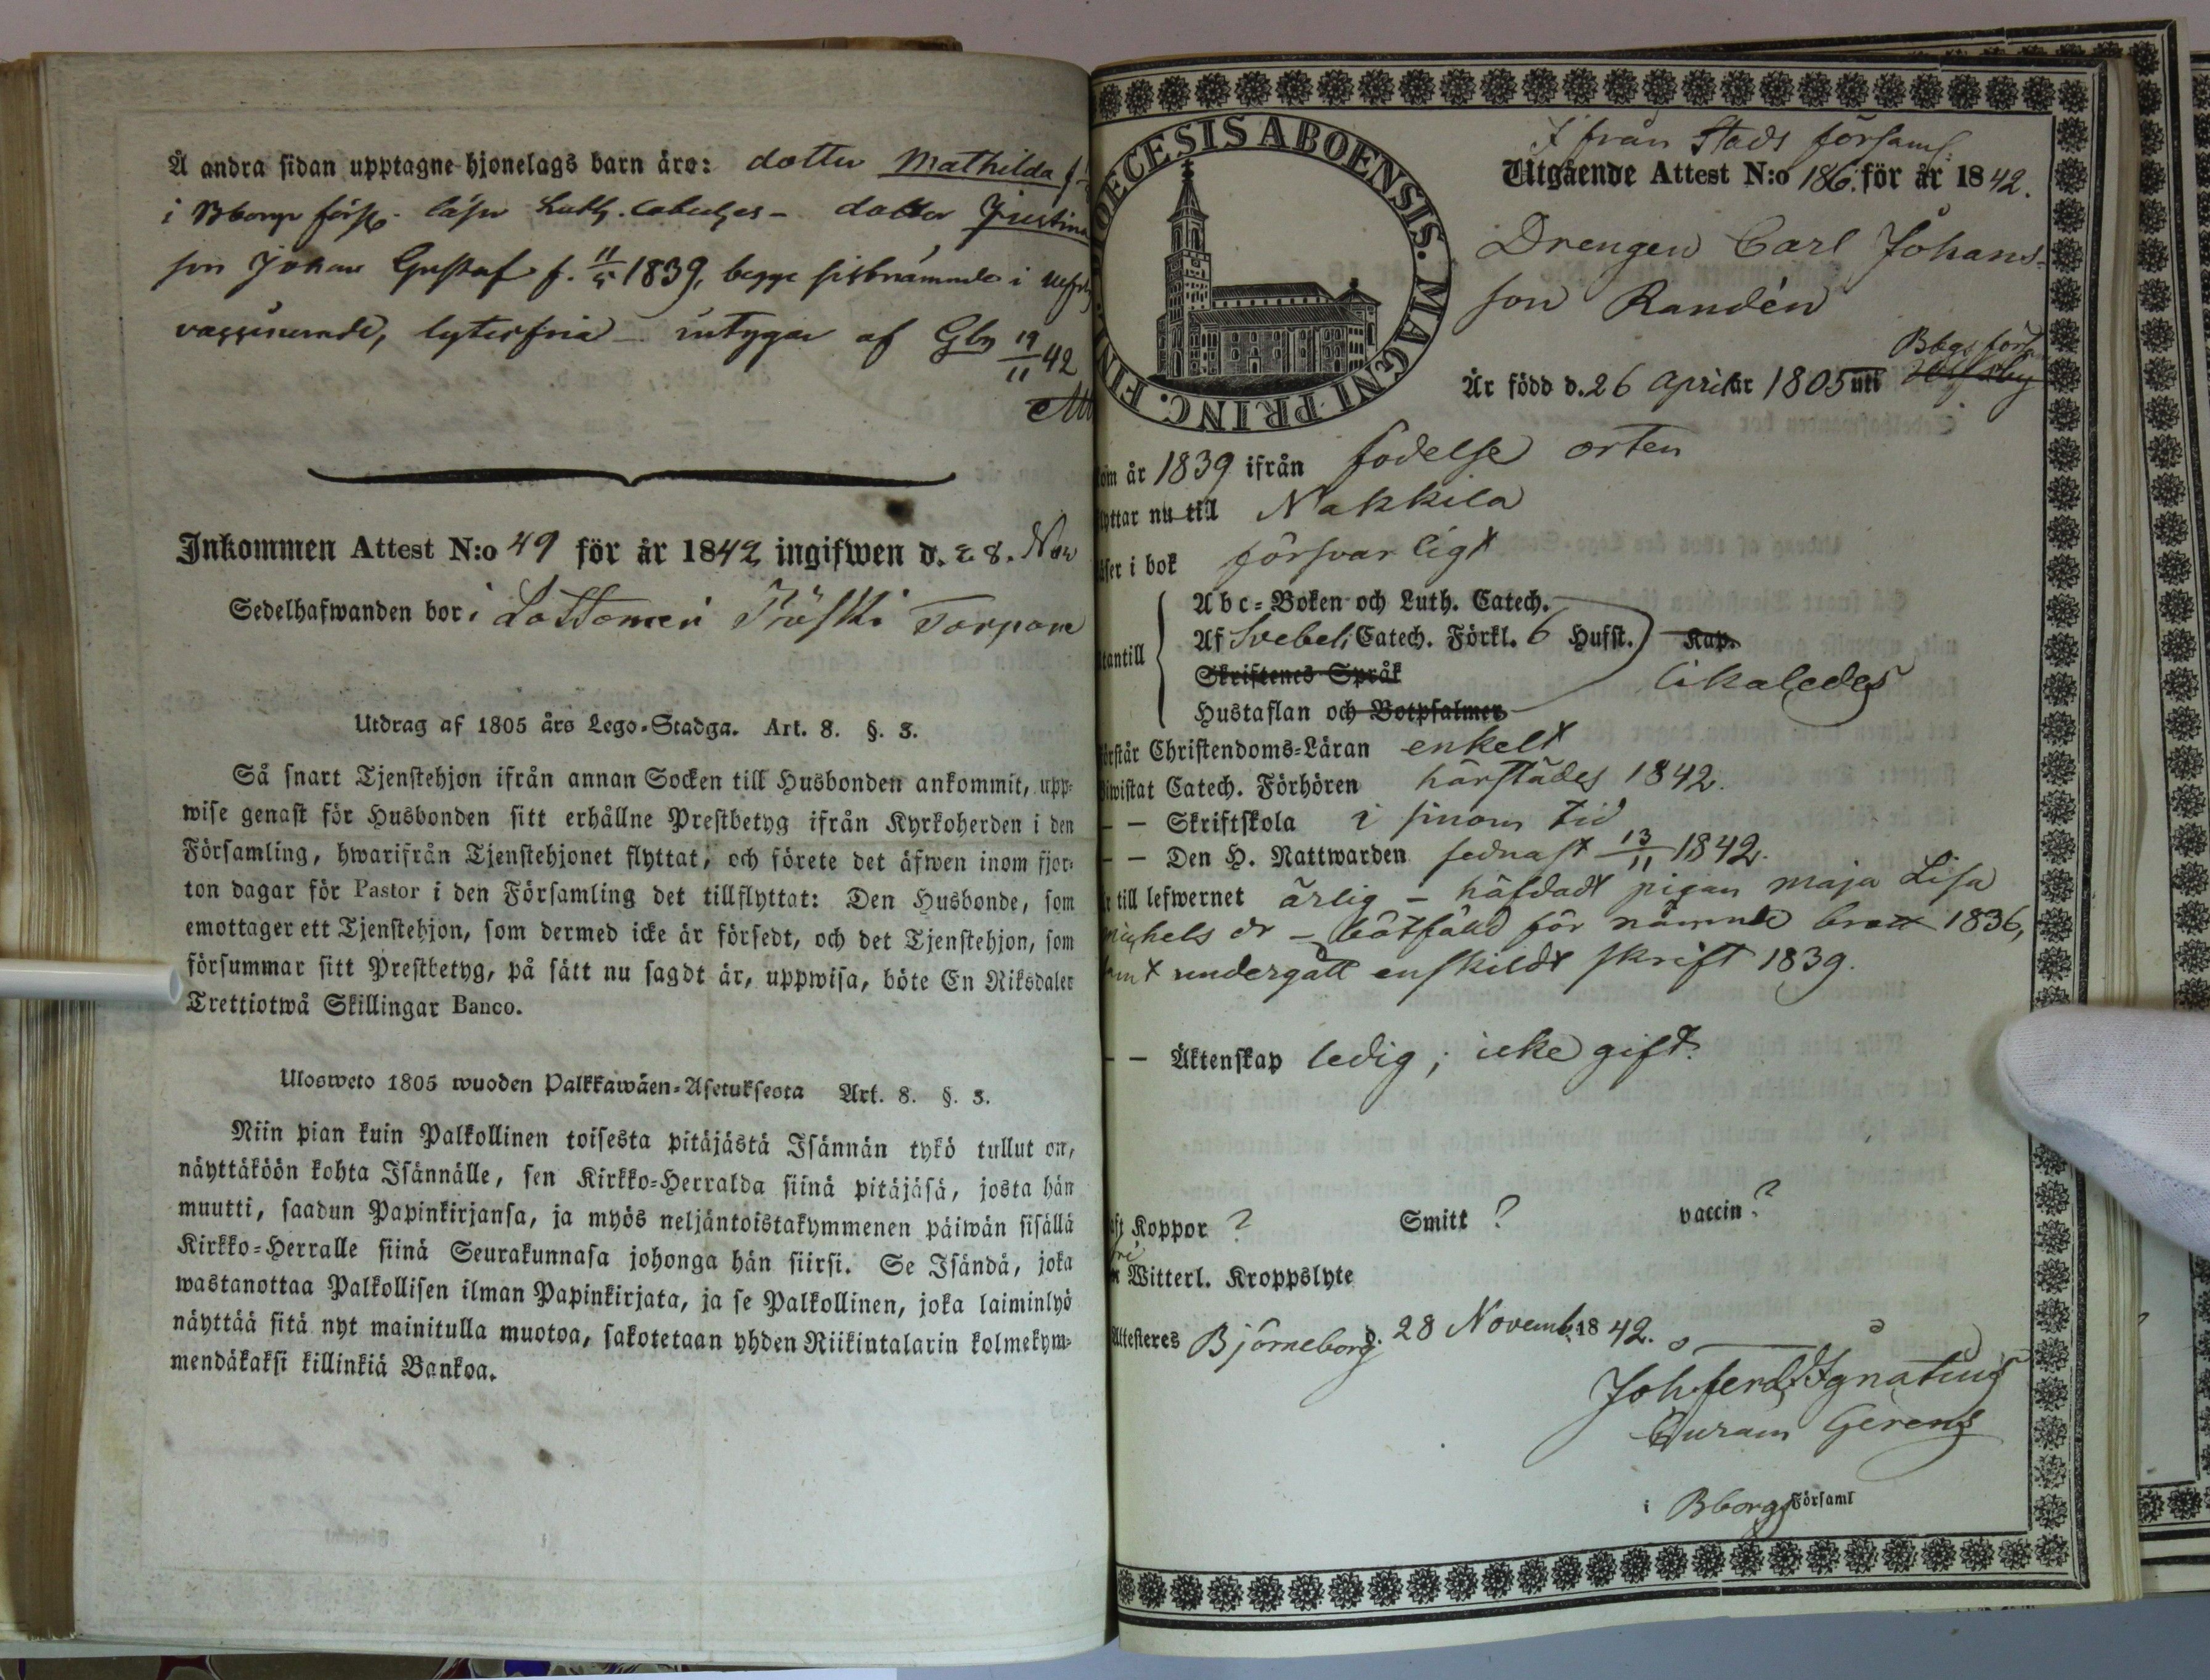 Å andra sidan upptagne hjonelags barn äro: dotter Mathilda f.
i Bborgs förs. läser Luth. Catches - dotter Justina
son Johan Gustaf f. 11/5 1839, begge sistnämnde i Ulfsby
vaccinerade, lytesfria - intygar af Gby 19/11 42
Inkommen Attest N:o 49 för år 1842 ingifwen d. 28. Nov
Sedelhafwanden bor i Lattomeri Torpare
Utdrag af 1805 års Lego-Stadga. Art. 8. §. 3.
Så snart Tjenstehjon ifrån annan Socken till Husbonden ankommit, upp-
wise genast för Husbonden sitt erhållne Prestbetyg ifrån Kyrkoherden i den
Församling, hwarifrån Tjenstehjonet flyttat, och förete det äfwen inom fjor-
ton dagar för Pastor i den Församling det tillflyttat: Den Husbonde, som
emottager ett Tjenstehjon, som dermed icke är försedt, och det Tjenstehjon, som
försummar sitt Prestbetyg, på sätt nu sagdt är, uppwisa, böte En Riksdaler
Trettiotwå Skillingar Banco.
Ulosweto 1805 wuoden Palkkawäen-Asetuksesta Art. 8. §. 3.
Niin pian kuin Palkollinen toisesta pitäjästä Isännän tykö tullut on,
näyttäköön kohta Isännälle, sen Kirkko-Herralda siinä pitäjäsä, josta hän
muutti, saadun Papinkirjansa, ja myös neljäntoistakymmenen päiwän sisällä
Kirkko-Herralle siinä Seurakunnasa johonga hän siirsi. Se Isändä, joka
wastanottaa Palkollisen ilman Papinkirjata, ja se Palkollinen, joka laiminlyö
näyttää sitä nyt mainitulla muotoa, sakotetaan yhden Riikintalarin kolmekym-
mendäkaksi killinkiä Bankoa.
DIOECESIS ABOENSIS. MAGNI PRINC. FIN
Ifrån Stads församl:
Utgående Attest N:o 186. för år 1842.
Drengen Carl Johans-
son Randén
Bbgs förs
Är född d. 26 April år 1805 uti Ulfsby
om år 1839 ifrån födelse orten
lyttar nu till Nakkila
äser i bok försvarligt
Abc-Boken och Luth. Catech.
Af Svebeli Catech. Förkl. 6 Hufst. Kap.
tantill
Skriftenes Språk likaledes
Hustaflan och Botpsalmer
örstår Christendoms-Läran enkelt
Biwistat Catech. Förhören härstädes 1842.
— — Skriftskola i sinom tid
— — Den H. Nattwarden sednast 13/11 1842.
r till lefwernet ärlig - häfdadt pigan Maja Lisa
Michels dr - bötfälld för nämnde brott 1836,
samt undergått enskildt skrift 1839.
— — Äktenskap ledig, icke gift.
aft Koppor ? Smitt ? vaccin ?
fri
r Witterl. Kroppslyte
Attesteres Björneborg d. 28 Novemb. 1842.
Joh. Ferd. Ignatius
Curam Gerens
i Bborgs Församl